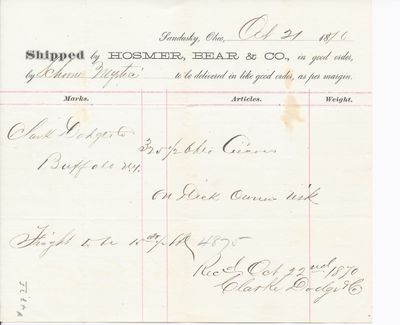 Sandusky, Ohio, Oct 21 1870
Shipped by HOSMER, BEAR & CO., in good order,
by Schoner Mystic to be delivered in like good order, as per margin.
Marks. Articles. Weight.
Clark Dodge & Co
Buffalo N.Y.
325 1/2
on Deck Owner risk
4875
Rec'd Oct 22nd 1870
Clarke Dodge & Co